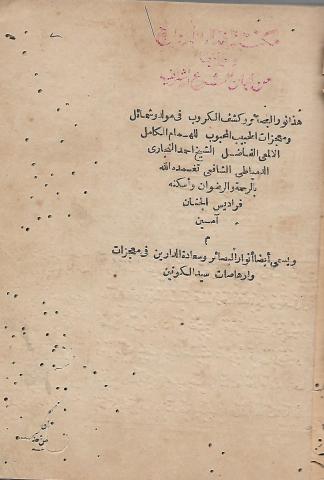 هذا نور البصائر وكشف الكروب فى مولد وشمائل
ومعجزات الحبيب المحبوب للهمام الكامل
الالمعى الفاضل الشيخ احمد النجارى
الدمياطى الشافعى تغمده الله
بالرحمة والرضوان وأسكنه
فراديس الجنان
آمين
م
ويسمى أيضا أنوار البصائر وسعادة الدارين فى معجزات
وارهاصات سيد الكونين